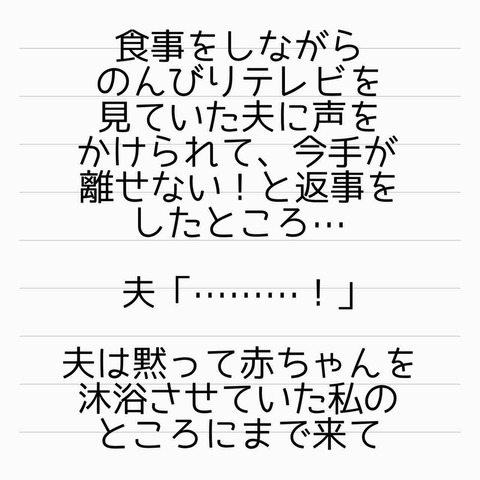 食事をしながら
のんびりテレビを
見ていた夫に声を
かけられて、今手が
離せない！と返事を
したところ…
夫「………！」
夫は黙って赤ちゃんを
沐浴させていた私の
ところにまで来て